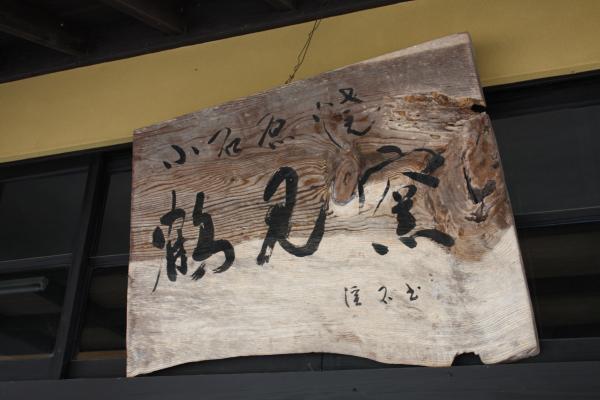 小石原焼
鶴見窯